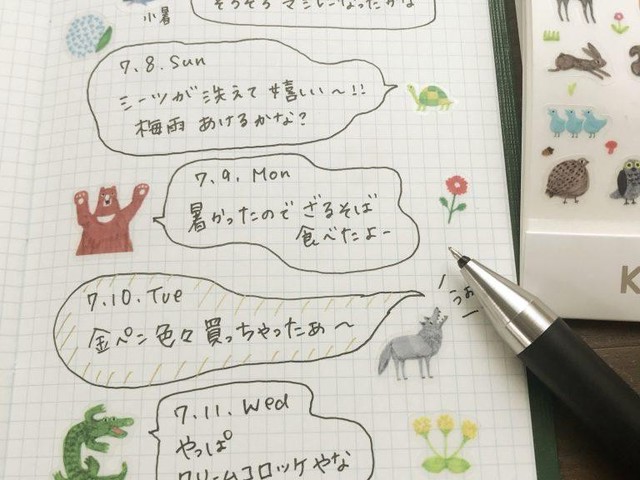 小暑
そろそろ マシになったかな
7.8.Sun
シーツが 洗えて 嬉しい〜!!
梅雨 あけるかな?
7.9.Mon
暑かったので ざるそば
食べたよー
7.10.Tue
うぉー
金ペン 色々 買っちゃったぁ〜
7.11.Wed
やっぱ
クリームコロッケやな
K